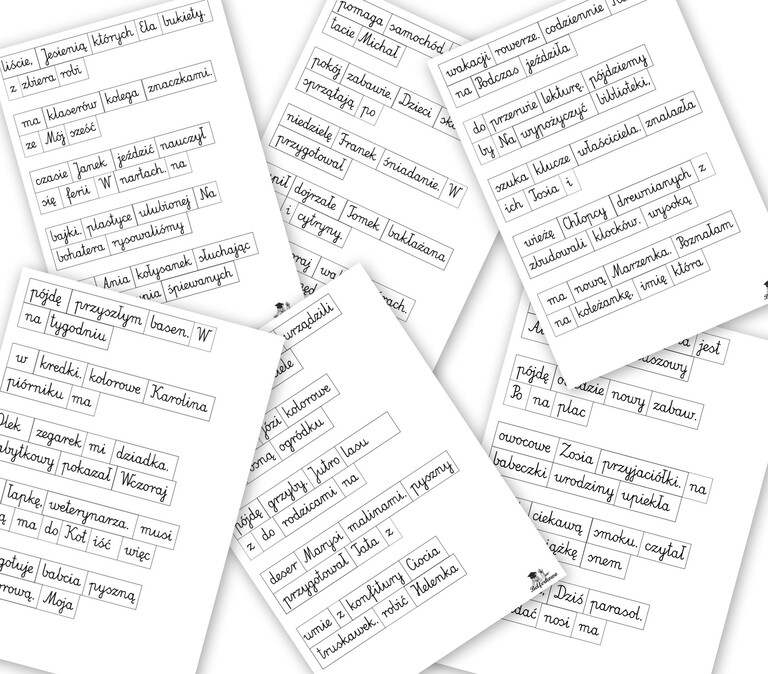 liście, Jesienią których Ela bukiety.
z zbiera robi
ma klaserów kolega znaczkami.
ze Mój sześć
czasie Janek jeździć nauczył
się ferii W nartach. na
bajki. plastyce ulubionej Na
bohatera rysowaliśmy
Ania kołysanek słuchając
śpiewanych
pomaga samochód
tacie Michał
pokój zabawie. Dzieci
sprzątają po
niedzielę Franek śniadanie. W
przygotował
dojrzałe Tomek bakłażana
i cytryny.
wakacji rowerze. codziennie
na Podczas jeździła
do przerwie lekturę. pójdziemy
by Na wypożyczyć biblioteki,
szuka klucze właściciela. znalazła
ich Tosia i
wieżę Chłopcy drewnianych z
zbudowali klocków. wysoką
ma nową Marzenka. Poznałam
na koleżankę, imię która
pójdę przyszłym basen. W
na tygodniu
w kredki. kolorowe Karolina
piórniku ma
Olek zegarek mi dziadka.
zabytkowy pokazał Wczoraj
łapkę, weterynarza. musi
ma do Kot iść więc
babcia pyszną
Moja
urządzili
kolorowe
ogródku
pójdę grzyby. Jutro lasu
z do rodzicami na
deser Marysi malinami. pyszny
przygotował Tata z
umie z konfitury Ciocia
truskawek. robić Helenka
jest
pójdę nowy zabaw.
Po na plac
owocowe Zosia przyjaciółki. na
babeczki urodziny upiekła
ciekawą smoku. czytał
snem
Dziś parasol.
nosi ma